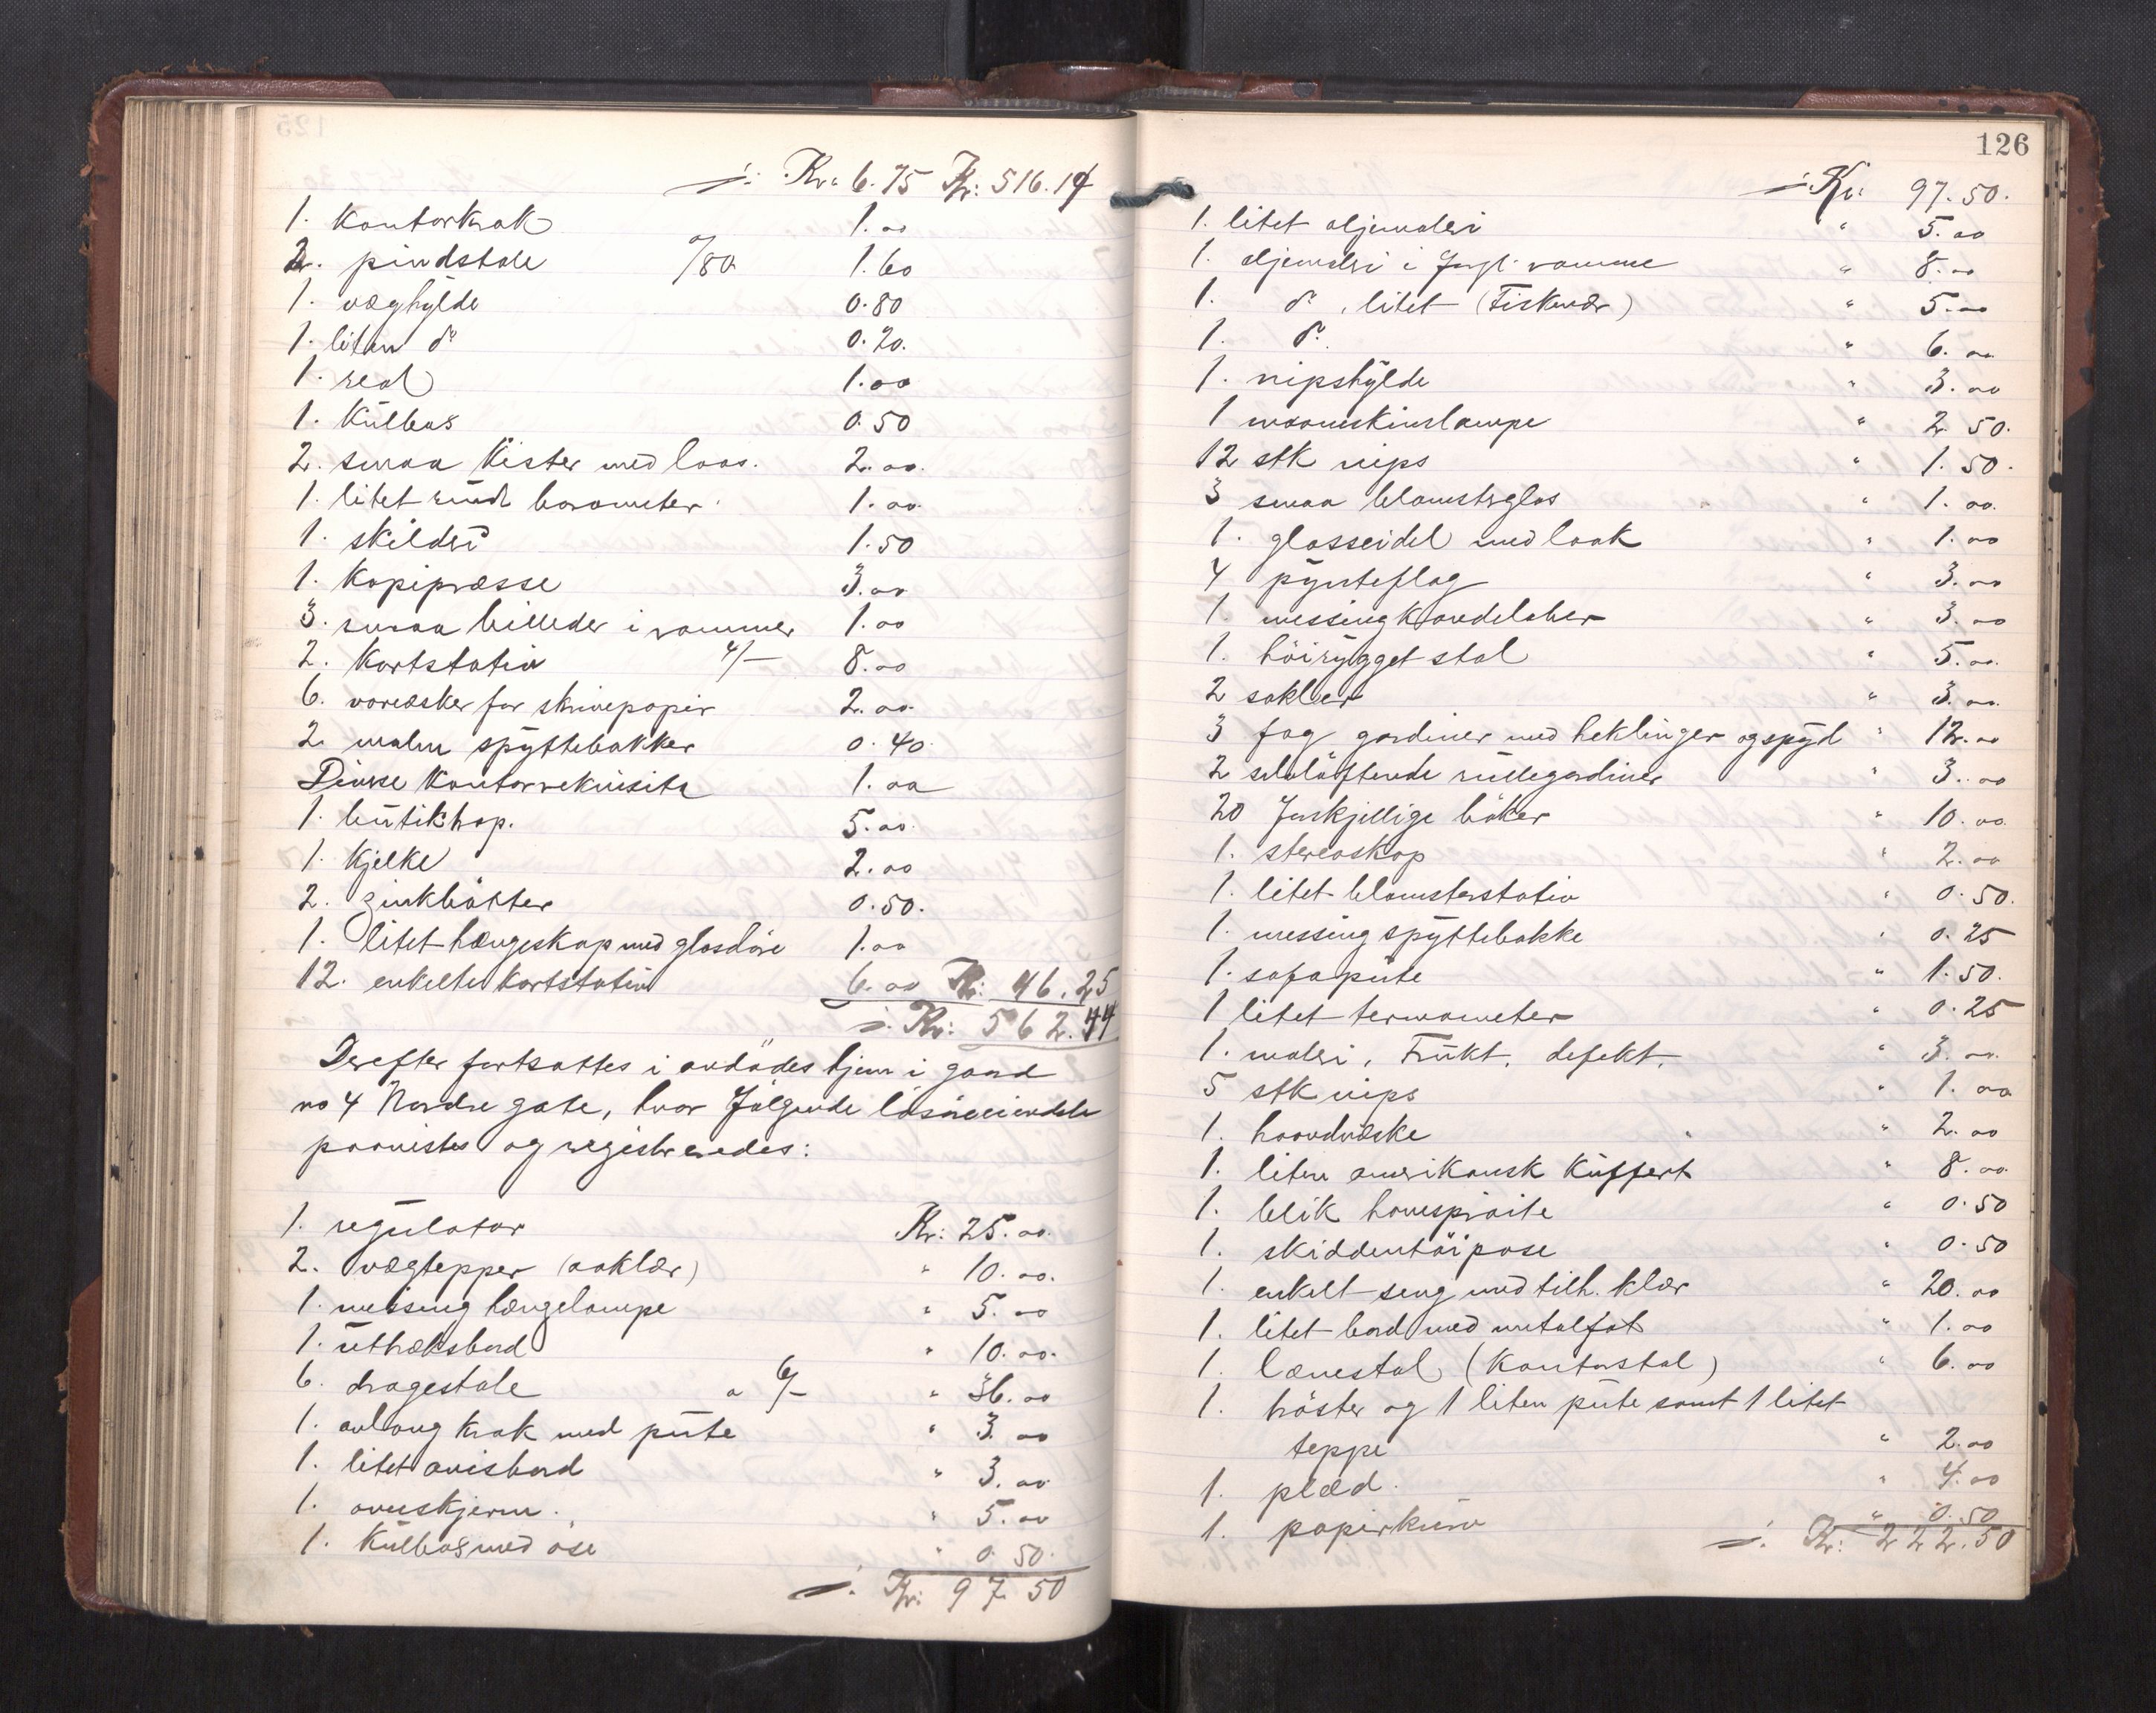 ÷ Kr: 6.75 Kr: 516.19
1. Kontorkrak 1.00
2. pindstole a/80 1.60
1. væghylde 0.80
1. liten do 0.20.
1. reol 1.00
1. Kulboks 0.50
2. smaa Kister med laas. 2.00.
1. litet rundt barometer 1.00
1. skilderi 1.50
1. Kopipresse 3.00
3. smaa billeder i rammer 1.00
2. Kortstativ 4/- 8.00
6. voræsker for skrivepapir 2.00
2. malm spyttebakker 0.40
Diverse Kontorrekvisita 1.00
1. butiktrap. 5.00
1. Kjelke 2.00
2. zinkbøtter 0.50.
1. litet hængeskap med glasdøre 1.00
12. enkelte Kortstativ 6.00 Kr: 46.25
÷ Kr: 562.44
Derefter fortsattes i avdødes hjem i gaard
no 4 Nordre gate, hvor følgende løsøreiendele
paavistes og registreredes:
1. regulator Kr: 25.00.
2. vægtepper (aaklær) " 10.00.
1. messing hængelampe " 5.00
1. uttræksbord " 10.00.
6. dragestole a 6/- " 36.00
1. avlang krak med pute " 3.00
1. litet avisbord " 3.00
1. ovnskjerm. " 5.00
1. Kulboks med øse " 0.50.
÷ Kr: 97.50
126
÷ Kr: 97.50.
1. litet oljemaleri " 5.00
1. oljemaleri i forgt. ramme " 8.00
1. do, litet (Fiskevær) " 5.00
1. do. " 6.00
1. nipshylde " 3.00
1 maaneskinslampe " 2.50.
12 stk nips " 1.50.
3 smaa blomsterglas " 1.00.
1. glasseidel med laak " 1.00
4 pynteflag " 3.00
1. messing Kandelaber " 3.00
1. höirygget stol " 5.00.
2 sokler " 3.00.
3 fag gardiner med heklinger og spyd " 12.00
2 selvløftende rullegardiner " 3.00
20 forskjellige bøker " 10.00.
1. stereoskop " 2.00
1. litet blomsterstativ " 0.50.
1. messing spyttebakke " 0.25
1. sofapute " 1.50.
1 litet termometer " 0.25
1. maleri, Frukt, defekt. " 3.00.
5 stk nips " 1.00
1. haandvæske " 2.00
1. liten amerikansk Kuffert " 8.00
1. blik havesprøite " 0.50
1. skiddentöipose " 0.50
1. enkelt seng med tilh. klær " 20.00
1. litet bord med metalfat " 1.00
1. lænestol (Kontorstol) " 6.00
1. höster og 1 liten pute samt 1 litet
teppe " 2.00
1. plæd. " 4.00
1. papirkurv " 0.50
÷ Kr: 222.50